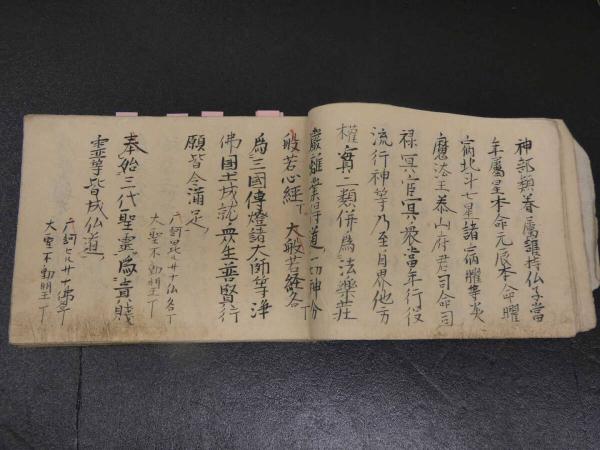 神部類眷屬護持仏子當
年屬星本命元辰本命曜
宿北斗七星諸宿曜等炎
魔法王泰山府君司命司
禄冥官冥衆當年行役
流行神等乃至自界他方
權實二類併爲法樂莊
嚴離業得道一切神分
般若心經丁 大般若經各丁
爲三國傳燈諸大師等淨
佛國土成就衆生普賢行
願皆令滿足
大聖不動明王丁
奉始三代聖靈爲貴賤
靈等皆成仏道
大聖不動明王丁